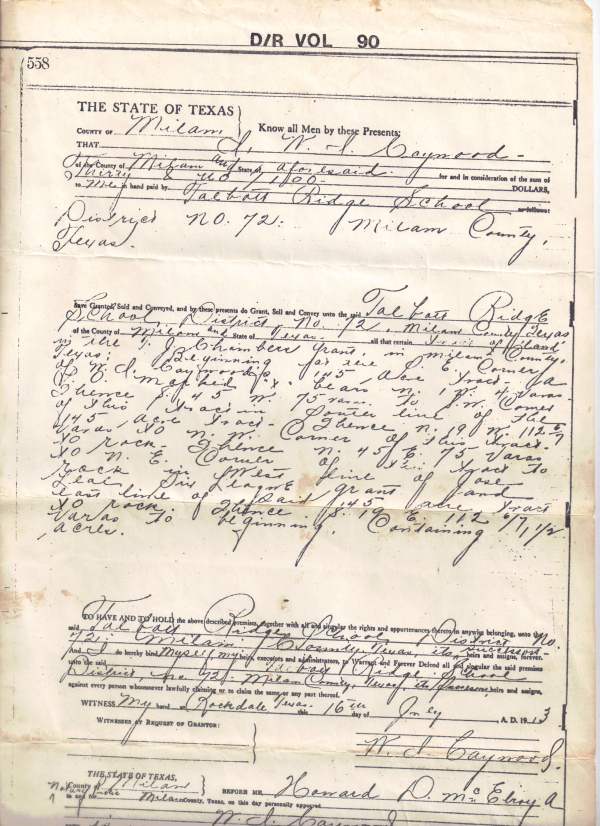 D/R VOL 90
558
THE STATE OF TEXAS
COUNTY OF Milam
Know all Men by these Presents:
THAT I, W. I. Caywood-
of the County of Milam and State of aforesaid for and in consideration of the sum of
Thirty & no/100- DOLLARS,
to me in hand paid by Talbott Ridge School as follows:
District No. 72. Milam County,
Texas.
have Granted, Sold and Conveyed, and by these presents do Grant, Sell and Convey unto the said Talbott Ridge
School, District No. 72, Milam County, Texas
of the County of Milam and State of Texas. all that certain Tract of land
in the T. J. Chambers Grant, in Milam County,
Texas: Beginning for the E. Corner
of W. I. Caywood's 145 Acre Tract- A
P. O. marked "X" bears N. 1° 4 Varas-
Thence S. 45 W. 75 varas to S.W. Corner
of this tract in South line of the
145 Acre Tract- Thence N. 19 W. 112 6/7
Varas to N. W. Corner of this Tract.
to rock. Thence N. 45 E. 75 Varas
to N. E. Corner of this Tract to
rock in West line of Jose
Leal Six League Grant and
East line of said 145 acre Tract
to rock. Thence S. 19 E. 112 6/7
Varas to beginning. Containing 1 1/2
acres.
TO HAVE AND TO HOLD the above described premises, together with all and singular the rights and appurtenances thereto in anywise belonging, unto the
said Talbott Ridge School District No
72. Milam County Texas, its successors heirs and assigns, forever.
And I do hereby bind Myself, my heirs, executors and administrators, to Warrant and Forever Defend all and singular the said premises
unto the said Talbott Ridge School
District No 72. Milam County, Texas, its successors, heirs and assigns,
against every person whomsoever lawfully claiming or to claim the same, or any part thereof.
WITNESS My hand at Rockdale Texas. this 16th day of July A. D. 1913
WITNESSES AT REQUEST OF GRANTOR:
W. I. Caywood.
THE STATE OF TEXAS,
County of Milam
BEFORE ME, Howard D. McElroy A
Notary Public in and for Milam County, Texas, on this day personally appeared
W. I. Caywood